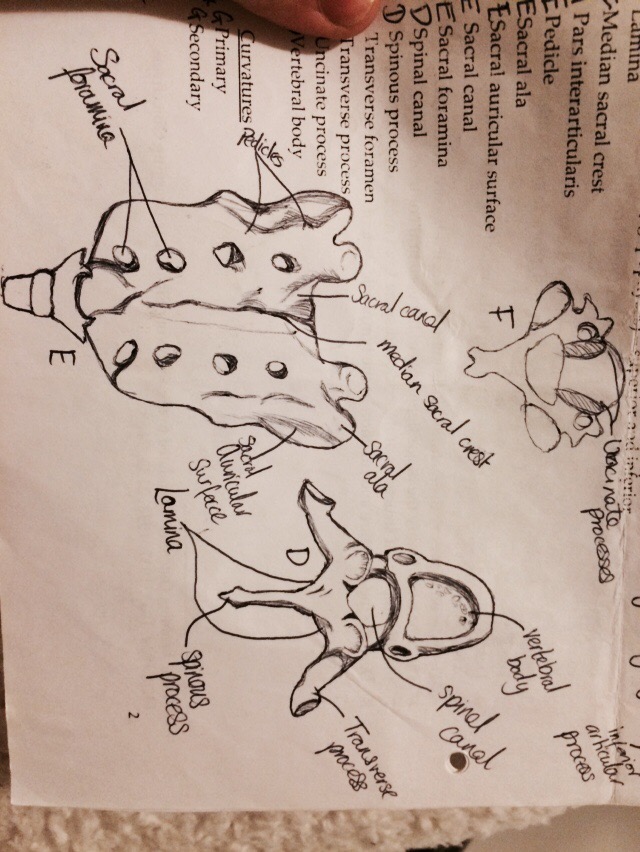 Lamina
Median sacral crest
Pars interarticularis
E Pedicle
E Sacral ala
E Sacral auricular surface
E Sacral canal
E Sacral foramina
D Spinal canal
D Spinous process
Transverse foramen
Transverse process
Uncinate process
Vertebral body
Curvatures
G Primary
G Secondary
and inferior
F
Uncinate
processes
inferior
articular
process
Sacral canal
median sacral crest
sacral
ala
Pedicles
Sacral
foramina
E
sacral
auricular
surface
vertebral
body
spinal
canal
D
Transverse
process
Lamina
spinous
process
2